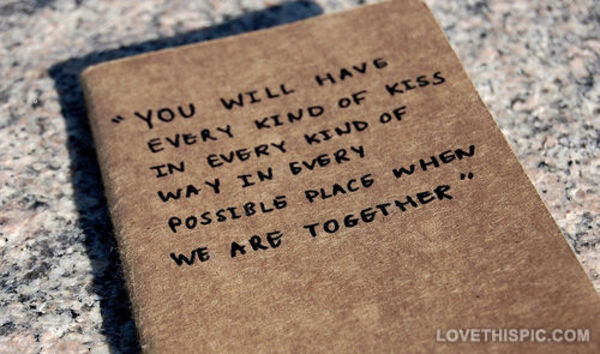 "YOU WILL HAVE
EVERY KIND OF KISS
IN EVERY KIND OF
WAY IN EVERY
POSSIBLE PLACE WHEN
WE ARE TOGETHER"
LOVETHISPIC.COM